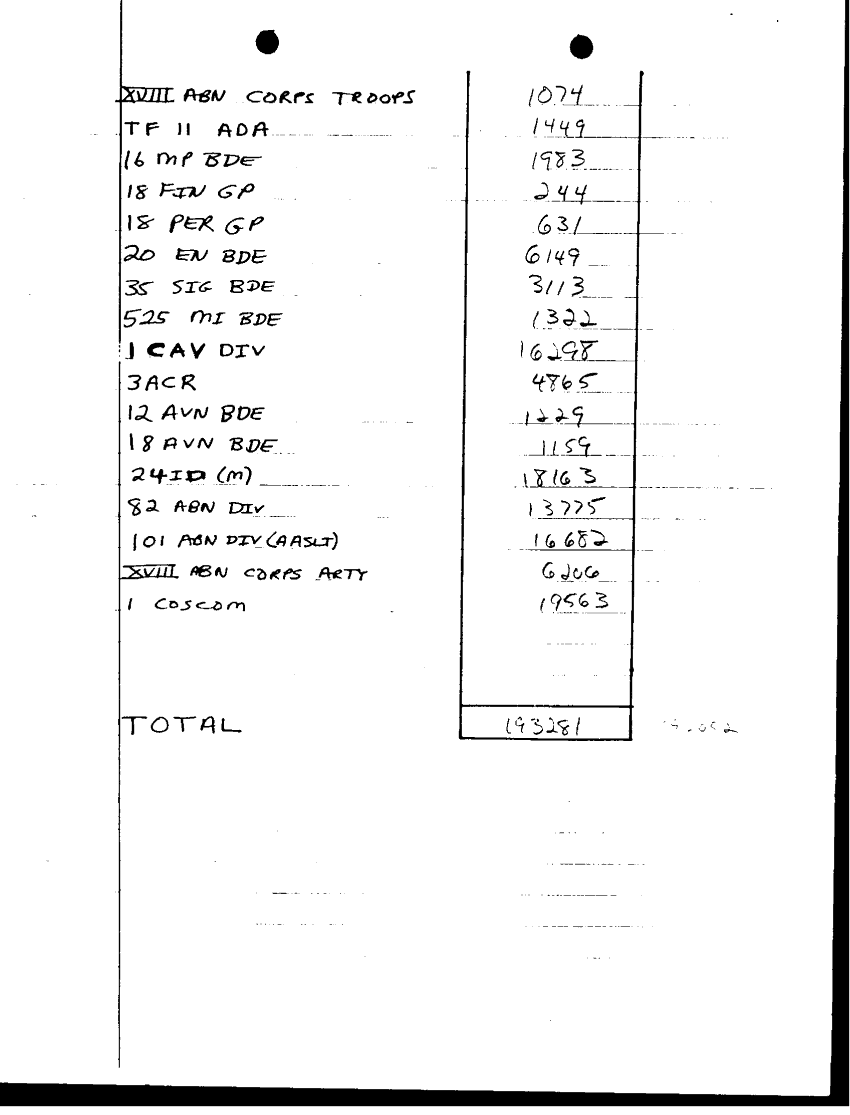 XVIII ABN CORPS TROOPS 1074
TF 11 ADA 1449
16 MP BDE 1983
18 FIN GP 244
18 PER GP 631
20 EN BDE 6149
35 SIG BDE 3113
525 MI BDE 1322
1 CAV DIV 16298
3ACR 4865
12 AVN BDE 1229
18 AVN BDE 1159
24ID (M) 18163
82 ABN DIV 13775
101 ABN DIV (AASLT) 16682
XVIII ABN CORPS ARTY 6206
1 COSCOM 19563
TOTAL 193281